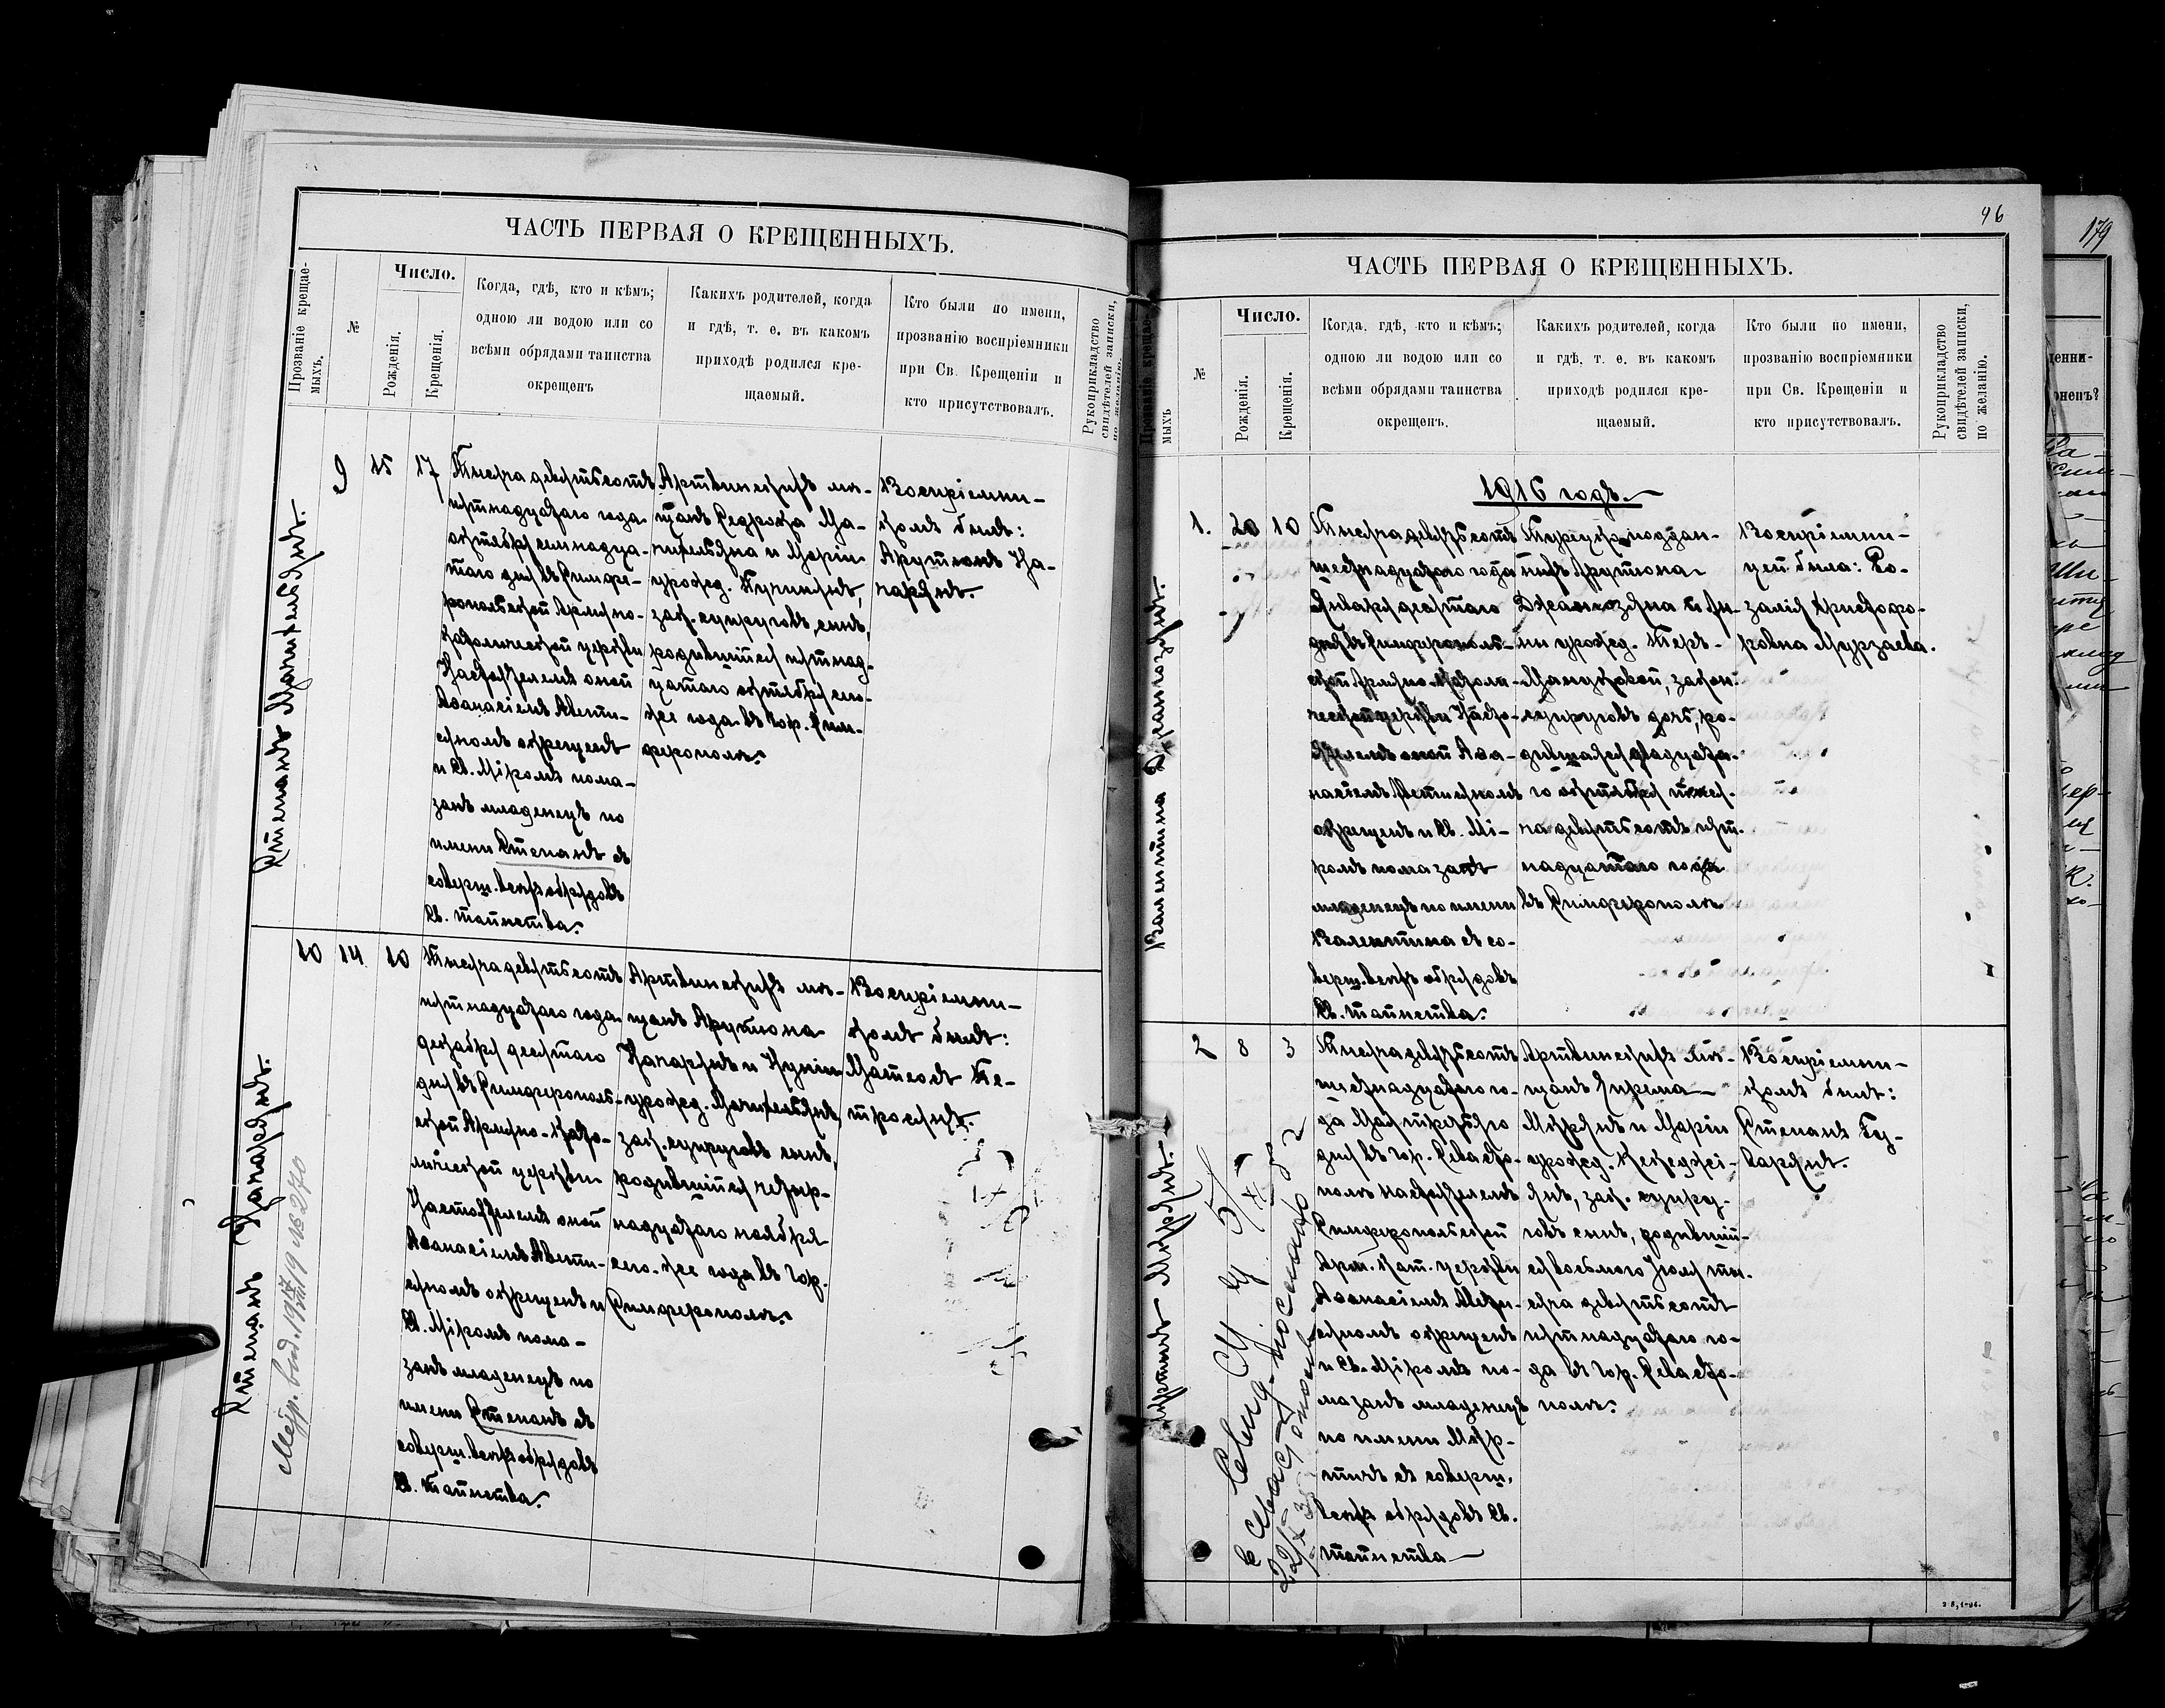 ЧАСТЬ ПЕРВАЯ О КРЕЩЕННЫХЪ.
Прозваніе крещае-
мыхъ.
№
Число.
Рожденія.
Крещенія.
Когда, гдѣ, кто и кѣмъ;
одною ли водою или со
всѣми обрядами таинства
окрещенъ
Какихъ родителей, когда
и гдѣ, т. е. въ какомъ
приходѣ родился кре-
щаемый.
Кто были по имени,
прозванію воспріемники
при Св. Крещеніи и
кто присутствовалъ.
Рукоприкладство
свидѣтелей записки,
по желанію.
Степанъ
9
15
17
Тысяча девятьсотъ
пятнадцатаго года
октября семнадца-
таго дня въ Симфе-
ропольской Армяно-
католической церкви
Настоятелемъ оной
Аѳанасіемъ Авети-
сяномъ окрещенъ
и Св. Мѵромъ пома-
занъ младенецъ по
имени Степанъ съ
соверш. всѣхъ обрядовъ
Св. таинства.
Артвинскихъ мѣ-
щанъ Седрака Ма-
и Маріи
урожд.
зак. супруговъ, сынъ,
родившійся пятнад-
цатаго октября сего-
же года въ гор. Сим-
ферополѣ.
Воспріемни-
комъ былъ:
Арутюнъ Ка-
парянъ.
Степанъ Капарянъ.
Метр. выд. № 270
10
14
10
Тысяча девятьсотъ
пятнадцатаго года
декабря десятаго
дня въ Симферополь-
ской Армяно-Като-
лической церкви
Настоятелемъ оной
Аѳанасіемъ Авети-
сяномъ окрещенъ и
Св. Мѵромъ пома-
занъ младенецъ по
имени Степанъ съ
соверш. всѣхъ обрядовъ
Св. Таинства.
Артвинскихъ мѣ-
щанъ Арутюна
Капарянъ и
урожд.
зак. супруговъ сынъ,
родившійся четыр-
надцатаго ноября
сего-же года въ гор.
Симферополѣ.
Воспріемни-
комъ былъ:
Матеосъ Пе-
тросянъ.
96
ЧАСТЬ ПЕРВАЯ О КРЕЩЕННЫХЪ.
Прозваніе крещае-
мыхъ
№
Число.
Рожденія.
Крещенія.
Когда, гдѣ, кто и кѣмъ;
одною ли водою или со
всѣми обрядами таинства
окрещенъ.
Какихъ родителей, когда
и гдѣ, т. е. въ какомъ
приходѣ родился кре-
щаемый.
Кто были по имени,
прозванію воспріемники
при Св. Крещеніи и
кто присутствовалъ.
Рукоприкладство
свидѣтелей записки,
по желанію.
1916 годъ.
Валентина
1.
20
10
Тысяча девятьсотъ
шестнадцатаго года
Января десятаго
дня въ Симферополь-
ской Армяно-Католи-
ческой церкви Насто-
ятелемъ оной Аѳа-
насіемъ Аветисяномъ
окрещенъ и Св. Мѵ-
ромъ помазанъ
младенецъ по имени
Валентина съ со-
верш. всѣхъ обрядовъ
Св. таинства.
Турецко поддан-
ныхъ Арутюна
и Ан-
ны урожд. Теръ-
закон.
супруговъ дочь, ро-
дившаяся двадцата-
го октября тыся-
ча девятьсотъ пят-
надцатаго года
въ Симферополѣ
Воспріемни-
цей была: Ро-
залія Христофо-
ровна Мурзаева.
2
8
3
Тысяча девятьсотъ
шестнадцатаго го-
да Мая третьяго
дня въ гор. Севасто-
полѣ настоятелемъ
Симферопольской
Арм. Кат. церкви
Аѳанасіемъ Авети-
сяномъ окрещенъ
и Св. Мѵромъ по-
мазанъ младенецъ
по имени
съ соверш.
всѣхъ обрядовъ Св.
таинства
Артвинскихъ мѣ-
щанъ
и Маріи
урожд.
зак. супру-
говъ сынъ, родивший-
ся восьмого Іюля ты-
сяча девятьсотъ
пятнадцатаго го-
да въ гор. Севасто-
полѣ.
Воспріемни-
комъ былъ:
Степанъ
179